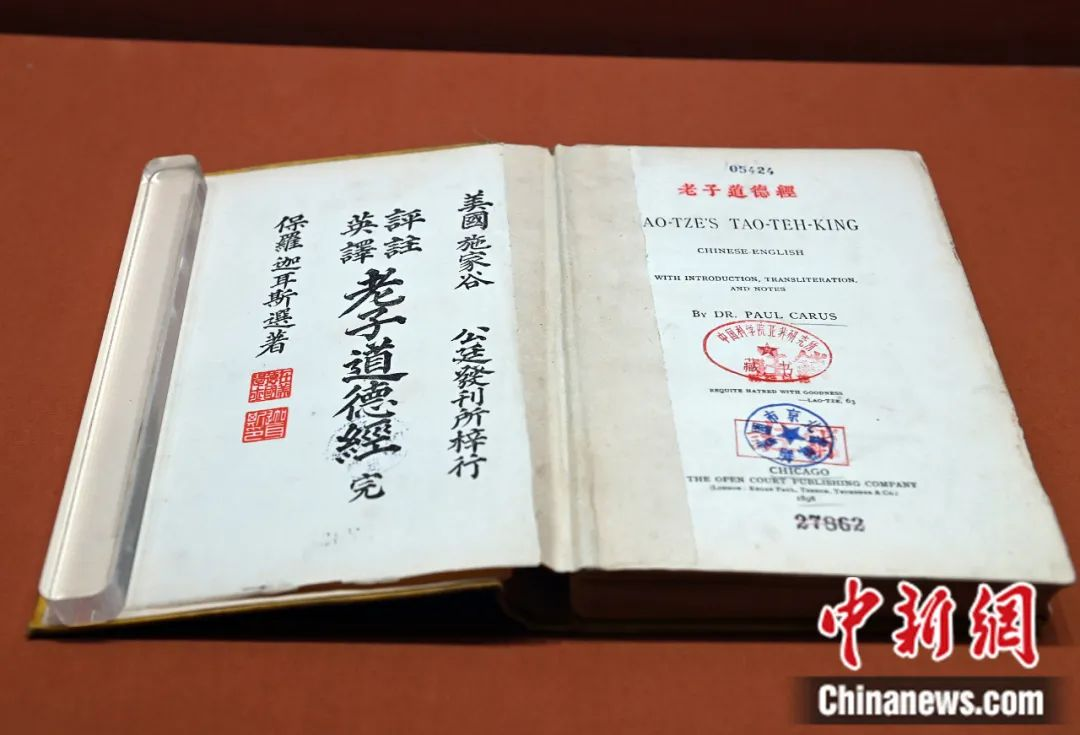 美國施家谷 公廷發刊所梓行
評註
英譯
老子道德經 完
保羅迦耳斯選著
05424
老子道德經
AO-TZE'S TAO-TEH-KING
CHINESE-ENGLISH
WITH INTRODUCTION, TRANSLITERATION,
AND NOTES
By DR. PAUL CARUS
藏书
REQUITE HATRED WITH GOODNESS
—LAO-TZE, 63
CHICAGO
THE OPEN COURT PUBLISHING COMPANY
(London: Kegan Paul, Trench, Truebner & Co.)
1898
27862
中新網
Chinanews.com